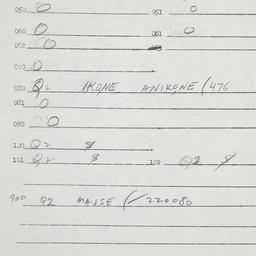 050 0 051 0
060 0 061 0
0
010 0
020 Q2 IKONE ANIKONE (476
021 0
090 0
100 Q2 8
101 Q2 8 102 Q2 8
900 Q2 MASSE (/220080